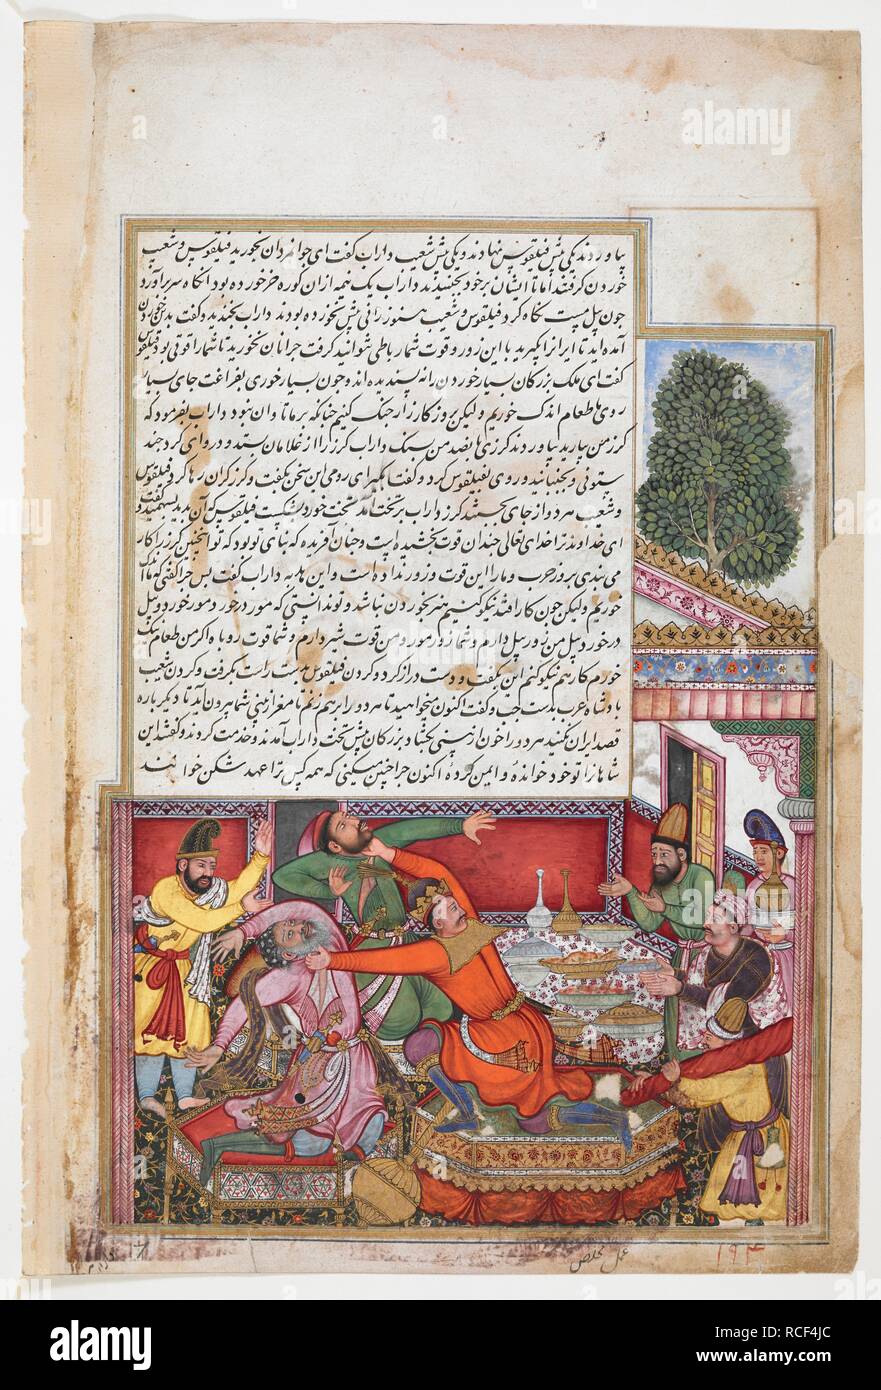 بیاوردند یکی پیش فیلقوس نهادند و یکی پیش شعیب داراب گفت ای جوانمردان بخورید فیلقوس و شعیب
خوردن گرفتند اما تا ایشان برخود بجنبیدند داراب یک نیمه ازان کوره خر خورده بود انکاه سر براورد
جون پیل مست نکاه کرد فیلقوس و شعیب هنوز رانی پیش نخورده بودند داراب بخندید و کفت بدین
آمده اید تا ایرانرا بکیرید با این زور و قوت شما رباطی نتوانید کرفت جرا نان نخورید تا شما را قوتی بود فیلقوس
کفت ای ملک بزرکان بسیار خوردن را نه پسندیده اند و جون بسیار خوری بفراغت جای بسیار
روی ما طعام اندک خوریم ولیکن بروز کارزار جنک کنیم جنانکه بر ما تاوان نبود داراب بفرمود که
کرز من بیارید بیاوردند کرزی هفتصد من سنک داراب کرز را از غلامان بستد و در هوای کرد جند
ستونی و بجنبانید و روی بفیلقوس کرد و کفت بکیر ای رومی این سخن بکفت و کرز کران رها کرد فیلقوس
و شعیب هر دو از جای بجستند کرز داراب بر تخت آمد تخت خورد بشکست فیلقوس که آن بدید
ای خداوند ترا خدای تعالی جندان قوت بخشیده است و جنان آفریده که نبای تو بود که تو اینجنین کرز را کار
می بندی بروز حرب و ما را این قوت و زور نداده است و این هدیه داراب کفت پس جرا کفتی که ما اندک
خوریم ولیکن جون کار افتد نیکو کنیم هنر بخوردن نباشد و تو ندانستی که مور در خورد مور خورد و پیل
در خورد پیل من زور پیل دارم و شما زور مور و من قوت شیر دارم و شما قوت روباه اکر من طعام نیک
خورم کار هم نیکو کنم این بکفت و دست دراز کرد و کردن فیلقوس بدست راست بکرفت و کردن شعیب
پادشاه عرب بدست جپ و کفت اکنون میخواهید تا هر دو را بر هم زنم تا مغز از بینی شما برون آید تا دیکر باره
قصد ایران نکنید هر دو را خون از بینی بکشاد بزرکان پیش تخت داراب آمدند و خدمت کردند و کفتند این
شاهانرا تو خود خوانده و ایمن کرده اکنون جرا جنین میکنی که همه کس ترا عهد شکن خوانند
عمل مخلص
۱۹۳
alamy
Image ID: RCF4JC
www.alamy.com